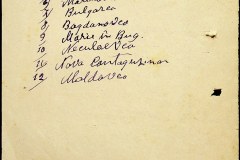 7 Bulgarca
8 Bogdanovca
9 Marie in Bug.
10 Neculaevca
11 Nova Cantaguzenca
12 Moldavca